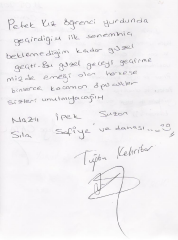 Petek Kız öğrenci yurdunda
geçirdiğim ilk senemhiç
beklemediğim kadar güzel
geçti. Bu güzel geceyi geçirme
mizde emeği olan herkese
binlerce kocaman öpücükler
sizleri unutmayacağım
Nazu İpek Suzan
Sıla Safiye ve danası...
Tuğba